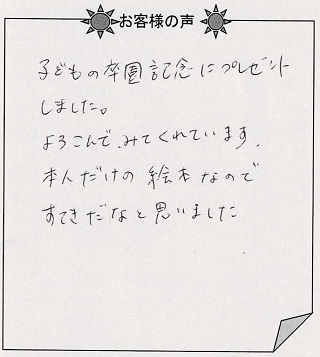 お客様の声
子どもの卒園記念にプレゼント
しました。
よろこんで、みてくれています.
本人だけの絵本なので
すてきだなと思いました